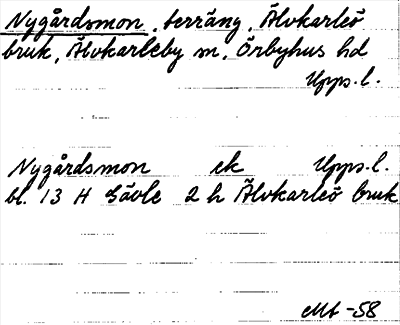 Nygårdsmon, terräng, Älvkarleö
bruk, Älvkarleby sn, Örbyhus hd
Upps. l.
Nygårdsmon ek Upps. l.
bl. 13 H Gävle 2 h Älvkarleö bruk
-58